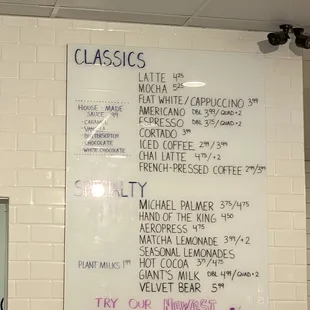 CLASSICS
LATTE 4.25
MOCHA 5.25
FLAT WHITE/CAPPUCCINO 3.99
AMERICANO DBL 3.99/QUAD+2
ESPRESSO DBL 3.75/QUAD+2
CORTADO 3.99
ICED COFFEE 2.99/3.99
CHAI LATTE 4.75/+2
FRENCH-PRESSED COFFEE 2.99/3.99
HOUSE-MADE
SAUCE .99
- CARAMEL
- VANILLA
- BUTTERSCOTCH
- CHOCOLATE
- WHITE CHOCOLATE
SPECIALTY
MICHAEL PALMER 3.75/4.75
HAND OF THE KING 4.50
AEROPRESS 4.75
MATCHA LEMONADE 3.99/+2
SEASONAL LEMONADES
HOT COCOA 3.75/4.75
GIANT'S MILK DBL 4.99/QUAD+2
VELVET BEAR 5.99
PLANT MILKS 1.99
TRY OUR NEWEST